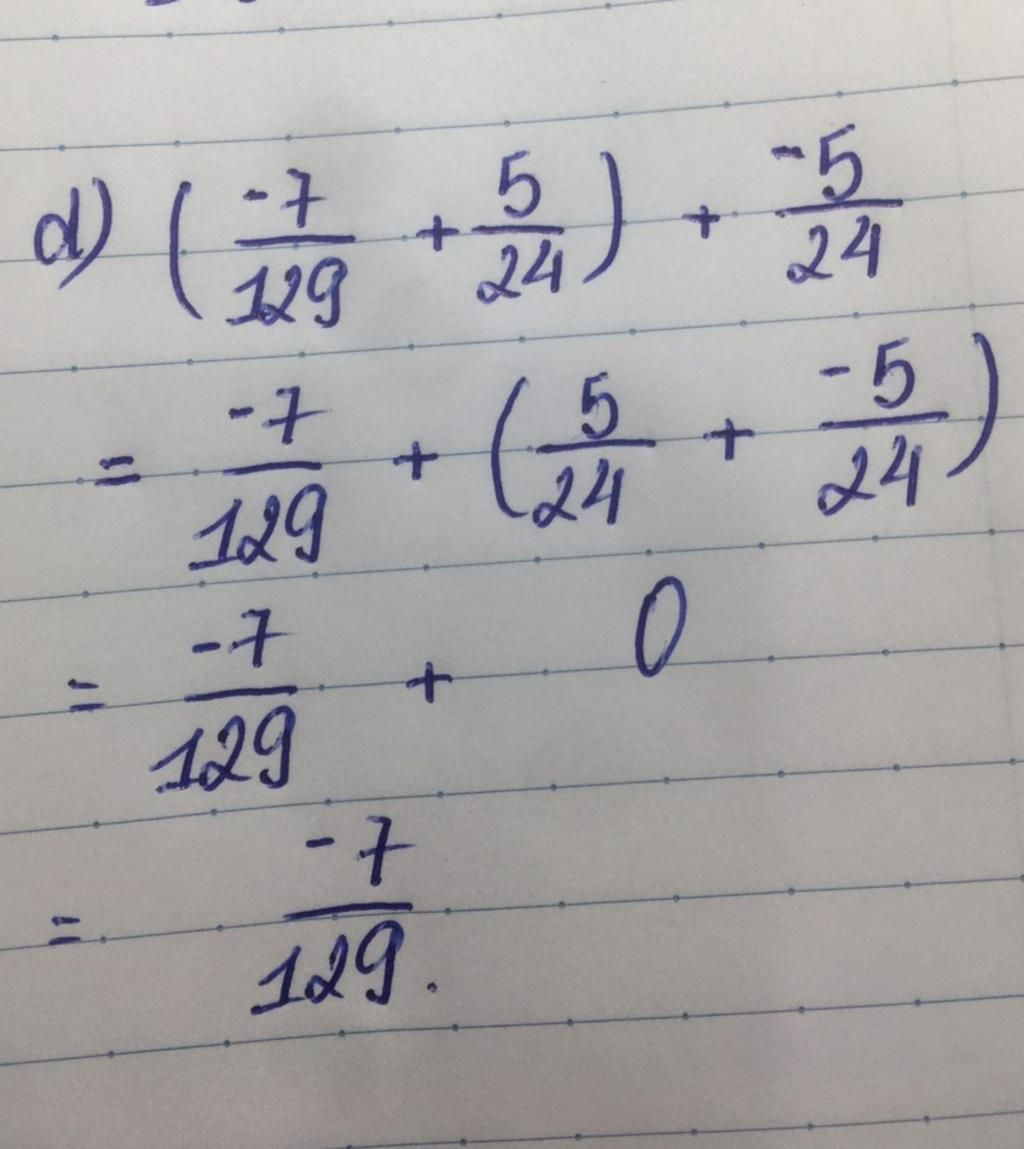 d) (-7/129 + 5/24) + -5/24
= -7/129 + (5/24 + -5/24)
= -7/129 + 0
= -7/129.